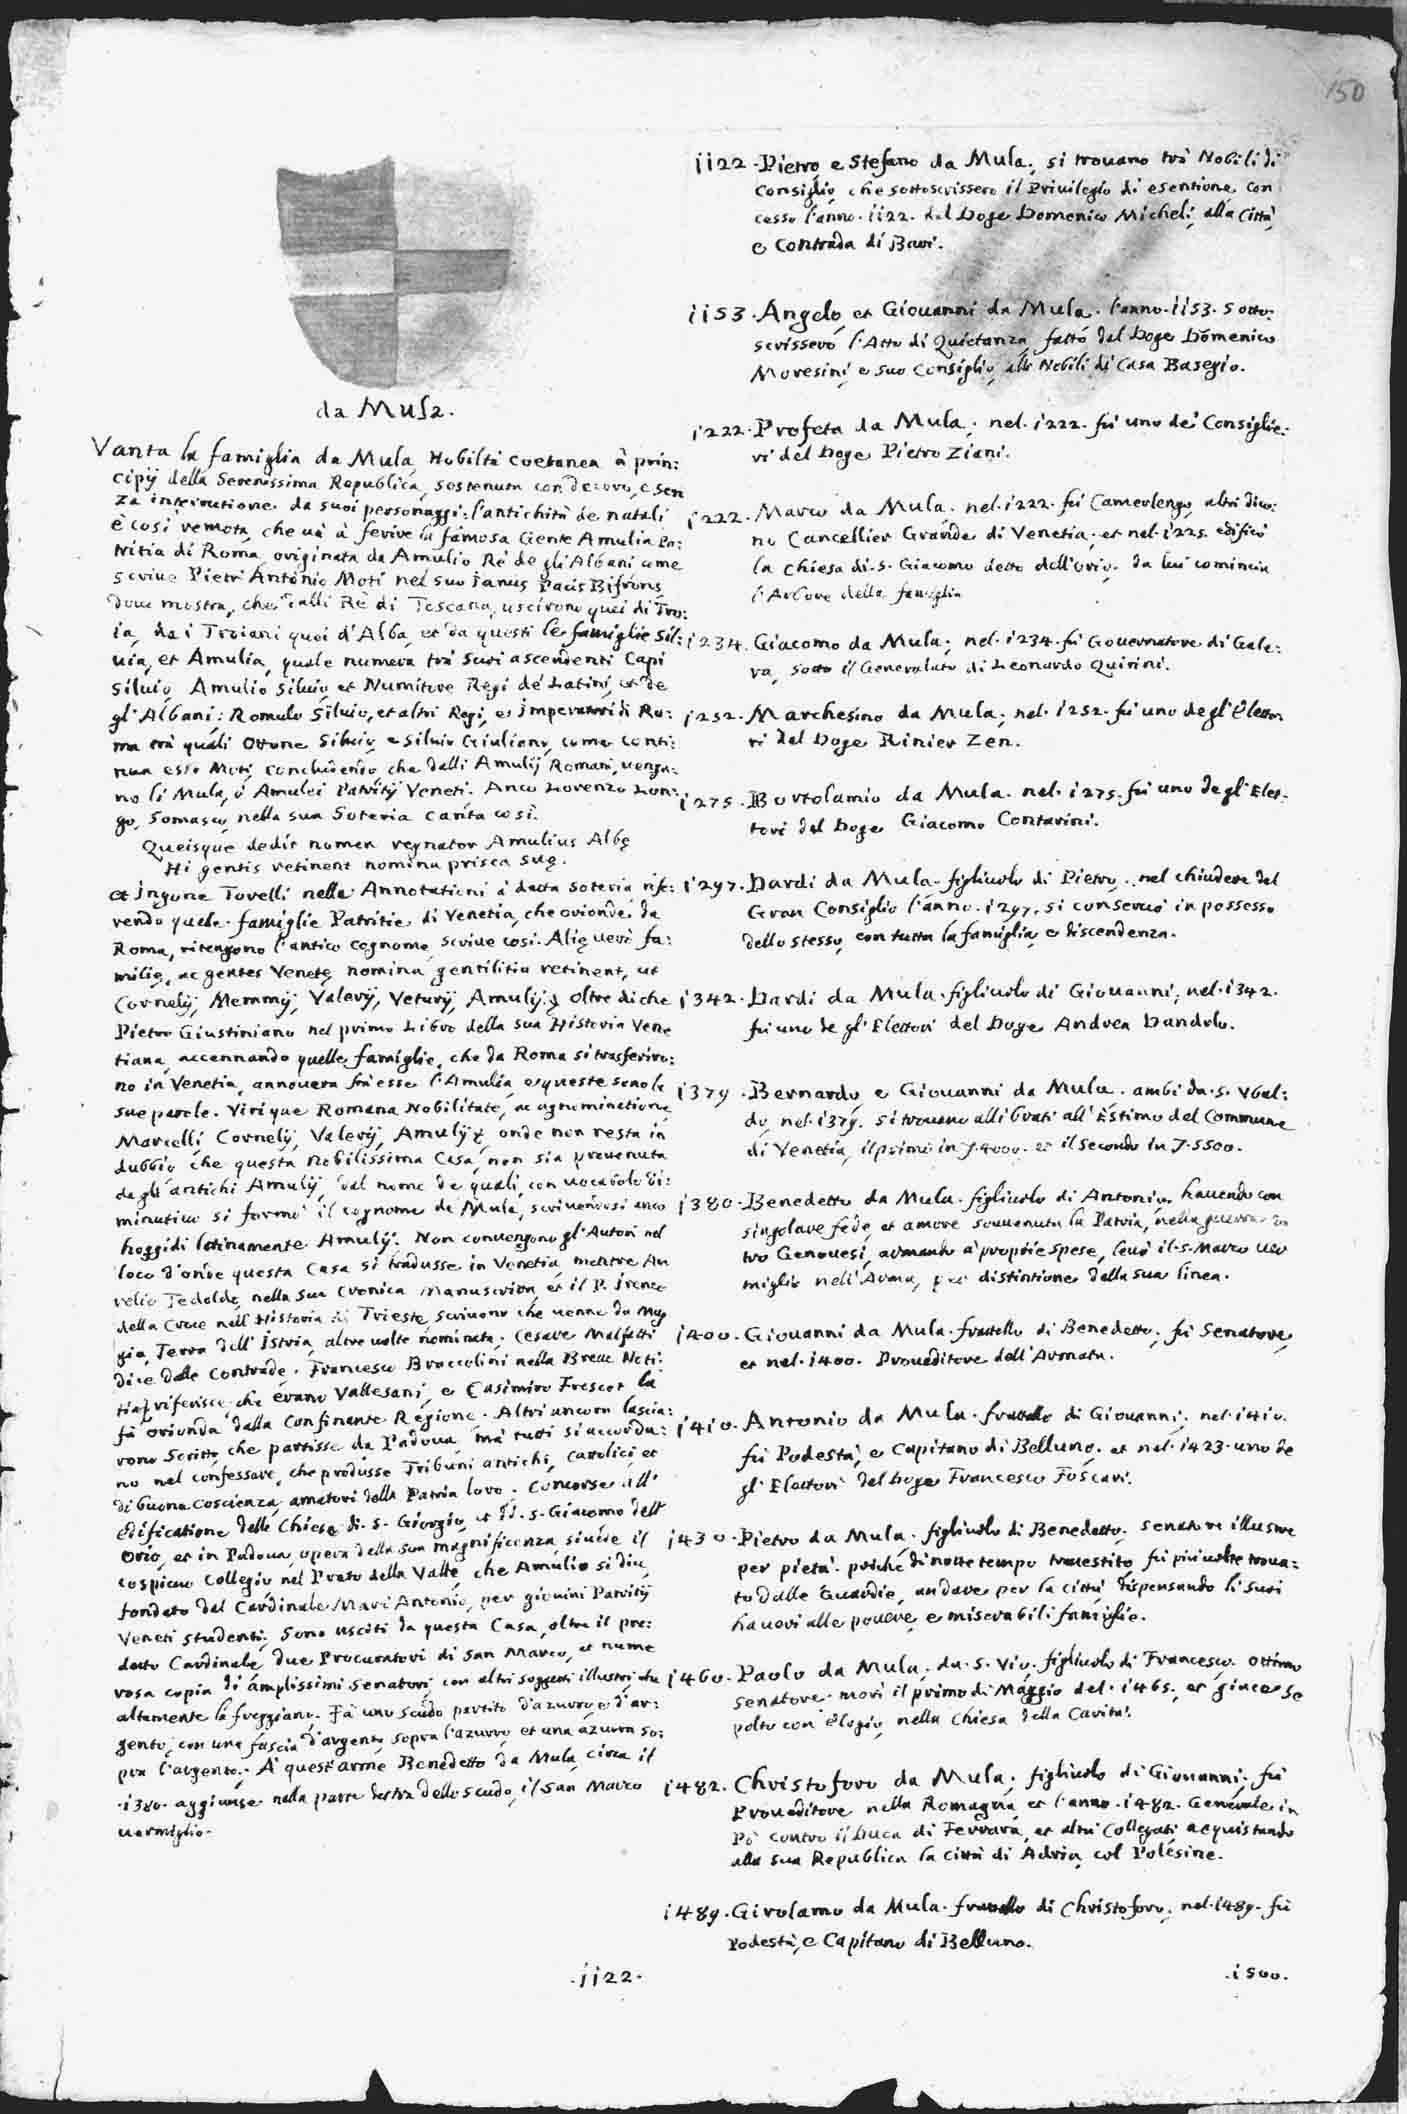 150
da Mula.
Vanta la famiglia da Mula, Nobiltà coetanea à prin:
cipij della Serenissima Republica, sostenuta con decoro, e sen
za interrutione da suoi personaggi: l'antichità de natali
è così remota, che uà à ferire la famosa Gente Amulia Pa:
tritia di Roma, originata da Amulio Rè de gl'Albani come
scriue Pietr'Antonio Moti nel suo Janus Pacis Bifrons,
doue mostra, che dalli Rè di Toscana, uscirono quei di Tro:
ia, da i Troiani quei d'Alba, et da questi le famiglie Sil:
uia, et Amulia, quale numera trà suoi ascendenti Capi
Siluio, Amulio Siluio, et Numitore Regi de Latini, et de
gl'Albani: Romulo Siluio, et altri Regi, et Imperatori di Ro:
ma trà quali Ottone Siluio, e Siluio Giuliano, come conti:
nua esso Moti, concludendo, che dalli Amulij Romani, uenga:
no li Mula, ò Amulei Patritij Veneti. Anco Lorenzo Lon:
go, Somasco, nella sua Soteria canta così.
Queisque dedit nomen regnator Amulius Albę
Hi gentis retinent nomina prisca suę.
et Ingone Torelli nelle Annotationi à detta Soteria, rife:
rendo quelle famiglie Patritie di Venetia, che orionde da
Roma, ritengono l'antico cognome, scriue così. Alię uerò fa:
milię, ac gentes Venetę, nomina gentilitia retinent, ut
Cornelij, Memmij, Valerij, Veturij, Amulij. Oltre di che
Pietro Giustiniano nel primo Libro della sua Historia Vene
tiana, accennando quelle famiglie, che da Roma si trasferiro:
no in Venetia, annouera frà esse l'Amulia, e queste sono le
sue parole. Virique Romana Nobilitate, ac agnominatione
Marcelli, Cornelij, Valerij, Amulij, onde non resta in
dubbio che questa nobilissima Casa, non sia prouenuta
degli antichi Amulij, dal nome de quali, con uocabolo di:
minutiuo si formò il cognome de Mula, scriuendosi anco
hoggidi latinamente Amulij. Non conuengono gl'Autori nel
loco d'onde questa Casa si tradusse in Venetia, mentre Au
relio Tedoldo, nella sua Cronica Manuscritta, et il P. Ireneo
della Croce nell'Historia di Trieste scriuono che uenne da Mug
gia, Terra dell'Istria, altre uolte nominata. Cesare Malfatti
dice dalle Contrade. Francesco Braccolini nella Breue Noti:
tia riferisce che erano Vallesani, e Casimiro Frescot la
fà orionda dalla Confinante Regione. Altri ancora lascia:
rono scritto, che partisse da Padoua, mà tutti si accorda:
no nel confessare, che produsse Tribuni antichi, Catolici, et
di buona coscienza, amatori della Patria loro. Concorse all'
edificatione delle Chiese di. S. Giorgio, et di. S. Giacomo dell'
Orio, et in Padoua, opera della sua magnificenza si uede il
cospicuo Collegio nel Prato della Valle, che Amulio si dice,
fondato dal Cardinale Marc'Antonio, per giouini Patritij
Veneti studenti. Sono usciti da questa Casa, oltre il pre:
detto Cardinale, due Procuratori di San Marco, et nume
rosa copia di amplissimi Senatori, con altri soggetti illustri, che
altamente la freggiano. Fà uno scudo partito d'azurro, e d'ar:
gento, con una fascia d'argento sopra l'azurro, et una azurra so:
pra l'argento. A quest'arme Benedetto da Mula, circa il
.1380. aggiunse nella parte destra dello scudo, il San Marco
uermiglio.
.1122.
1122. Pietro e Stefano da Mula, si trouano trà Nobili di
Consiglio, che sottoscrissero il Priuilegio di esentione con
cesso l'anno. 1122. dal Doge Domenico Micheli, alla Città,
e Contrada di Bari.
1153. Angelo, et Giouanni da Mula. l'anno. 1153. sotto:
scrissero l'Atto di Quietanza, fatto dal Doge Domenico
Moresini, e suo Consiglio, alli Nobili di Casa Basegio.
1222. Profeta da Mula; nel. 1222. fù uno dei Consiglie:
ri del Doge Pietro Ziani.
1222. Marco da Mula. nel. 1222. fù Camerlengo, altri dico:
no Cancellier Grande di Venetia; et nel. 1225. edificò
la Chiesa di. S. Giacomo detto dell'orio. da lui comincia
l'Arbore della famiglia
1234. Giacomo da Mula; nel. 1234. fù Gouernatore di Gale:
ra, sotto il Generalato di Leonardo Quirini.
1252. Marchesino da Mula; nel. 1252. fù uno degl'Eletto
ri del Doge Rinier Zen.
1275. Bortolamio da Mula. nel. 1275. fù uno degl'Elet:
tori del Doge Giacomo Contarini.
1297. Dardi da Mula. figliuolo di Pietro. nel chiudere del
Gran Consiglio l'anno. 1297. si conseruò in possesso
dello stesso, con tutta la famiglia, e discendenza.
1342. Dardi da Mula. figliuolo di Giouanni; nel. 1342.
fù uno de gl'Elettori del Doge Andrea Dandolo.
1379. Bernardo, e Giouanni da Mula. ambi da. S. Vbal:
do, nel. 1379. si trouano allibrati all'Estimo del Commune
di Venetia, il primo in ƒ. 4000. et il secondo in ƒ. 5500.
1380. Benedetto da Mula. figliuolo di Antonio, hauendo con
singolare fede, et amore souuenuta la Patria, nella guerra con
tro Genouesi, armando à proprie spese, leuò il. S. Marco uer
miglio nell'Arma, per distintione della sua linea.
1400. Giouanni da Mula. frattello di Benedetto; fù Senatore,
et nel. 1400. Proueditore dell'Armata.
1410. Antonio da Mula. frattello di Giouanni; nel. 1410.
fù Podestà, e Capitano di Belluno. et nel. 1423. uno de
gl'Elettori del Doge Francesco Foscari.
1430. Pietro da Mula. figliuolo di Benedetto, senatore illustre
per pietà. poiche di notte tempo trauestito fù più uolte troua:
to dalle Guardie, andare per la città, dispensando li suoi
haueri alle pouere, e miserabili famiglie.
1460. Paolo da Mula. da. S. Vio. figliuolo di Francesco. ottimo
senatore. morì il primo di Maggio del. 1465. et giace se
polto con elogio, nella Chiesa della Carità.
1482. Christoforo da Mula; figliuolo di Giouanni; fù
Proueditore nella Romagna, et l'anno. 1482. Generale in
Pò contro il Duca di Ferrara, et altri Collegati acquistando
alla sua Republica la città di Adria, col Polesine.
1489. Girolamo da Mula. frattello di Christoforo; nel. 1489. fù
Podestà, e Capitano di Belluno.
.1500.